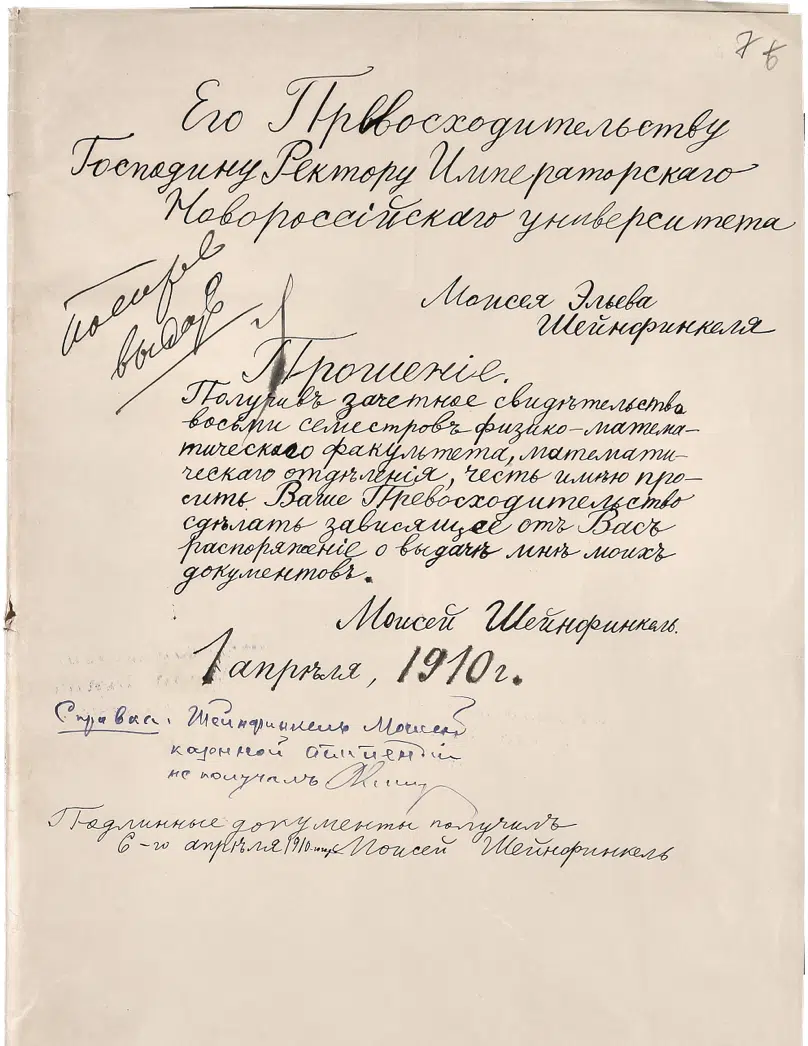 76
Его Превосходительству
Господину Ректору Императорскаго
Новороссійскаго университета
Моисея Эльева
Шейнфинкеля
выдать
Прошеніе.
Получивъ зачетное свидѣтельство
восьми семестровъ физико-матема-
тическаго факультета, математи-
ческаго отдѣленія, честь имѣю про-
сить Ваше Превосходительство
сдѣлать зависящее отъ Васъ
распоряженіе о выдачѣ мнѣ моихъ
документовъ.
Моисей Шейнфинкель.
1 апрѣля, 1910 г.
Справка. Шейнфинкель Моисей
казенной стипендіи
не получалъ
Подлинные документы получилъ
6-го апрѣля 1910 Моисей Шейнфинкель